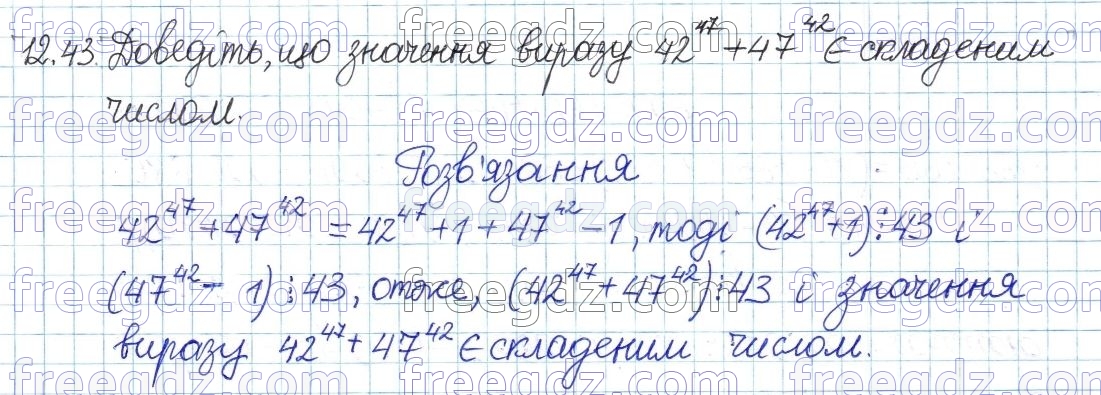 12.43. Доведіть, що значення виразу 42⁴⁷ + 47⁴² є складеним
числом.
Розв'язання
42⁴⁷ + 47⁴² = 42⁴⁷ + 1 + 47⁴² − 1, тоді (42⁴⁷+1)⋮43 і
(47⁴² − 1)⋮43, отже, (42⁴⁷ + 47⁴²)⋮43 і значення
виразу 42⁴⁷ + 47⁴² є складеним числом.
freegdz.com freegdz.com freegdz.com
freegdz.com freegdz.com freegdz.com
freegdz.com freegdz.com freegdz.com
freegdz.com freegdz.com freegdz.com
freegdz.com freegdz.com freegdz.com